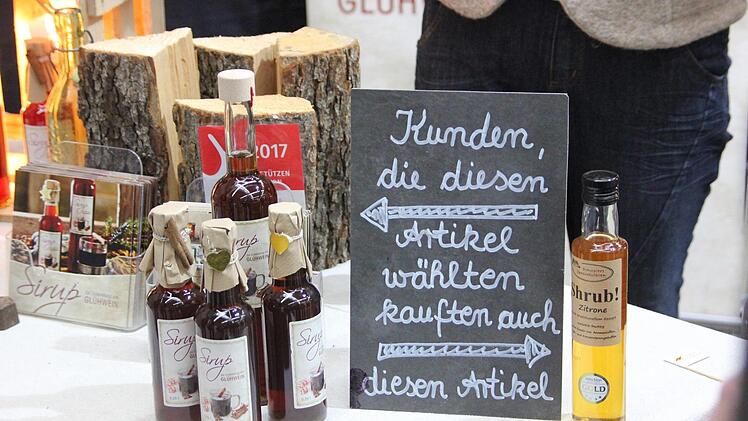 GLÜHWEIN
2017
Kunden,
die diesen
Artikel
wählten
kauften auch
diesen Artikel
Sirup
GLÜHWEIN
Sirup
Sirup
GLÜHWEIN
Sirup
GLÜHWEIN
Shrub!
Zitrone
GOLD